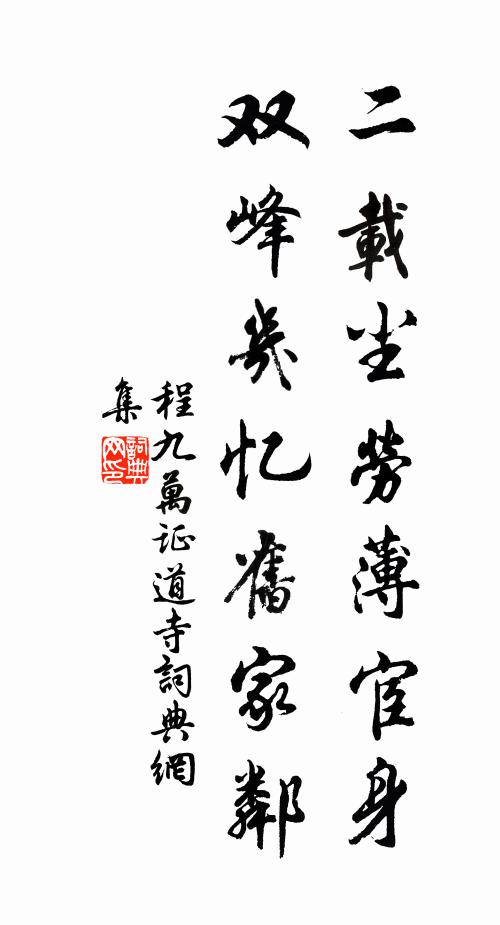 二載尘勞薄宦身
双峰幾忆舊家鄰
程九萬证道寺詞典網
集
詞典网印